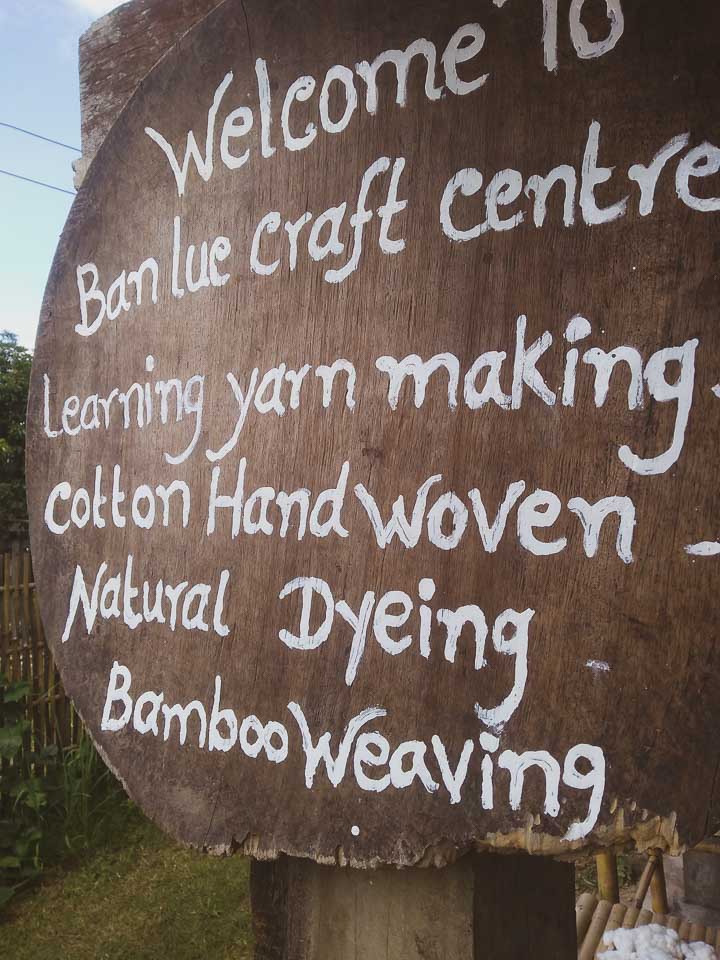 Welcome To
Ban lue craft centre
Learning yarn making -
cotton Hand woven -
Natural Dyeing
Bamboo Weaving